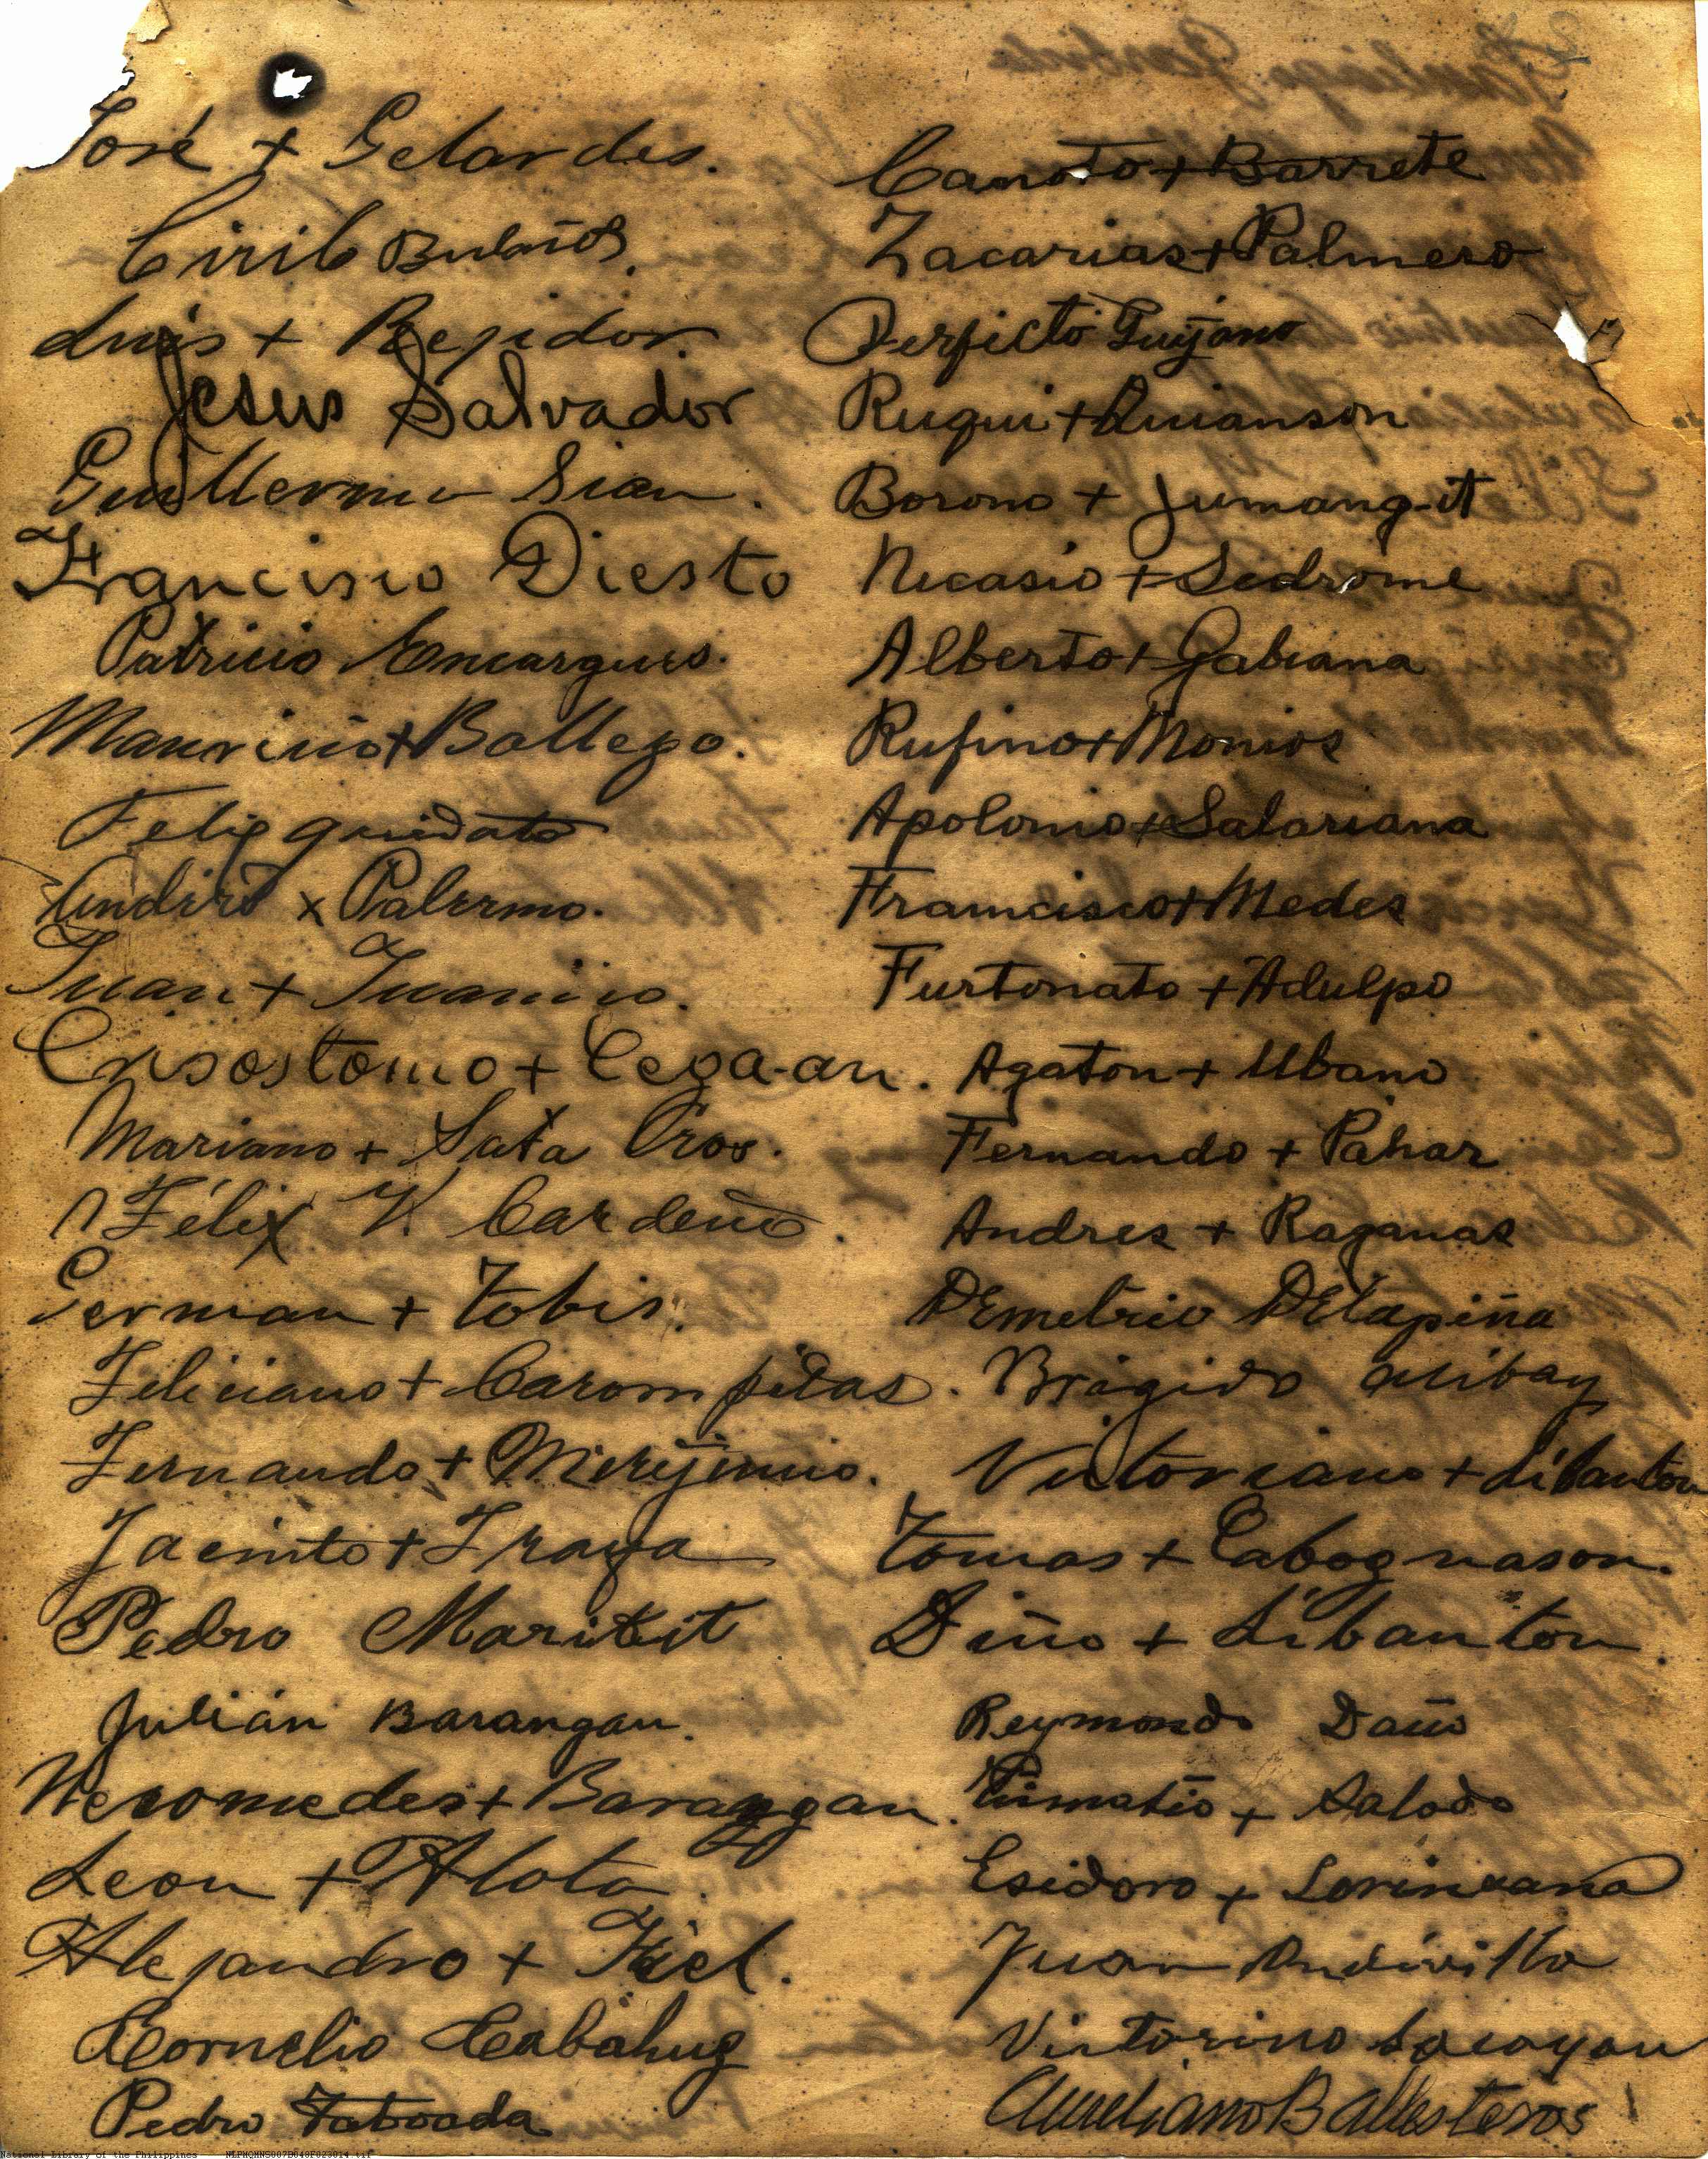 José + Gelardes.
Cirilo Bulaños.
Luis + Rejidor.
Jesus Salvador
Guillermo Sian.
Francisco Diesto
Patricio Encargues.
Mauricio + Ballego.
Felix
Andero x Palermo.
Juan + Juanico.
Crisostomo + Cega-an.
Mariano + Sata Cros.
Félix V. Cardeño.
German + Tobis.
Feliciano + Carompitas.
Fernando + Merejinio.
Jacinto + Fraga
Pedro Maritit
Julián Barangan.
Necomedes + Barangan.
Leon + Alota.
Alejandro + Fiel.
Cornelio Cabahug
Pedro Taboada
Canoto + Barrete
Zacarias + Palmero
Perfecto Tuijano
Ruqui + Quianson
Borono + Jumang-it
Nicasio + Sedrome
Alberto + Gabiana
Rufino + Monios
Apolonio + Salariana
Framcisco + Medes
Furtonato + Adulpo
Agaton + Ubano
Fernando + Pahar
Andres + Raganas
Demetrio Delapiña
Brigido Alibay
Victoriano + Libanton
Tomas + Cabognason.
Diño + Libanton
Reymondo Daño
+ Salodo
Esidoro + Lorinzana
Juan Andivilla
Victorino Lacayan
Aureliano Ballesteros
National Library of the Philippines NLPMQMNS007B048F023014.tif